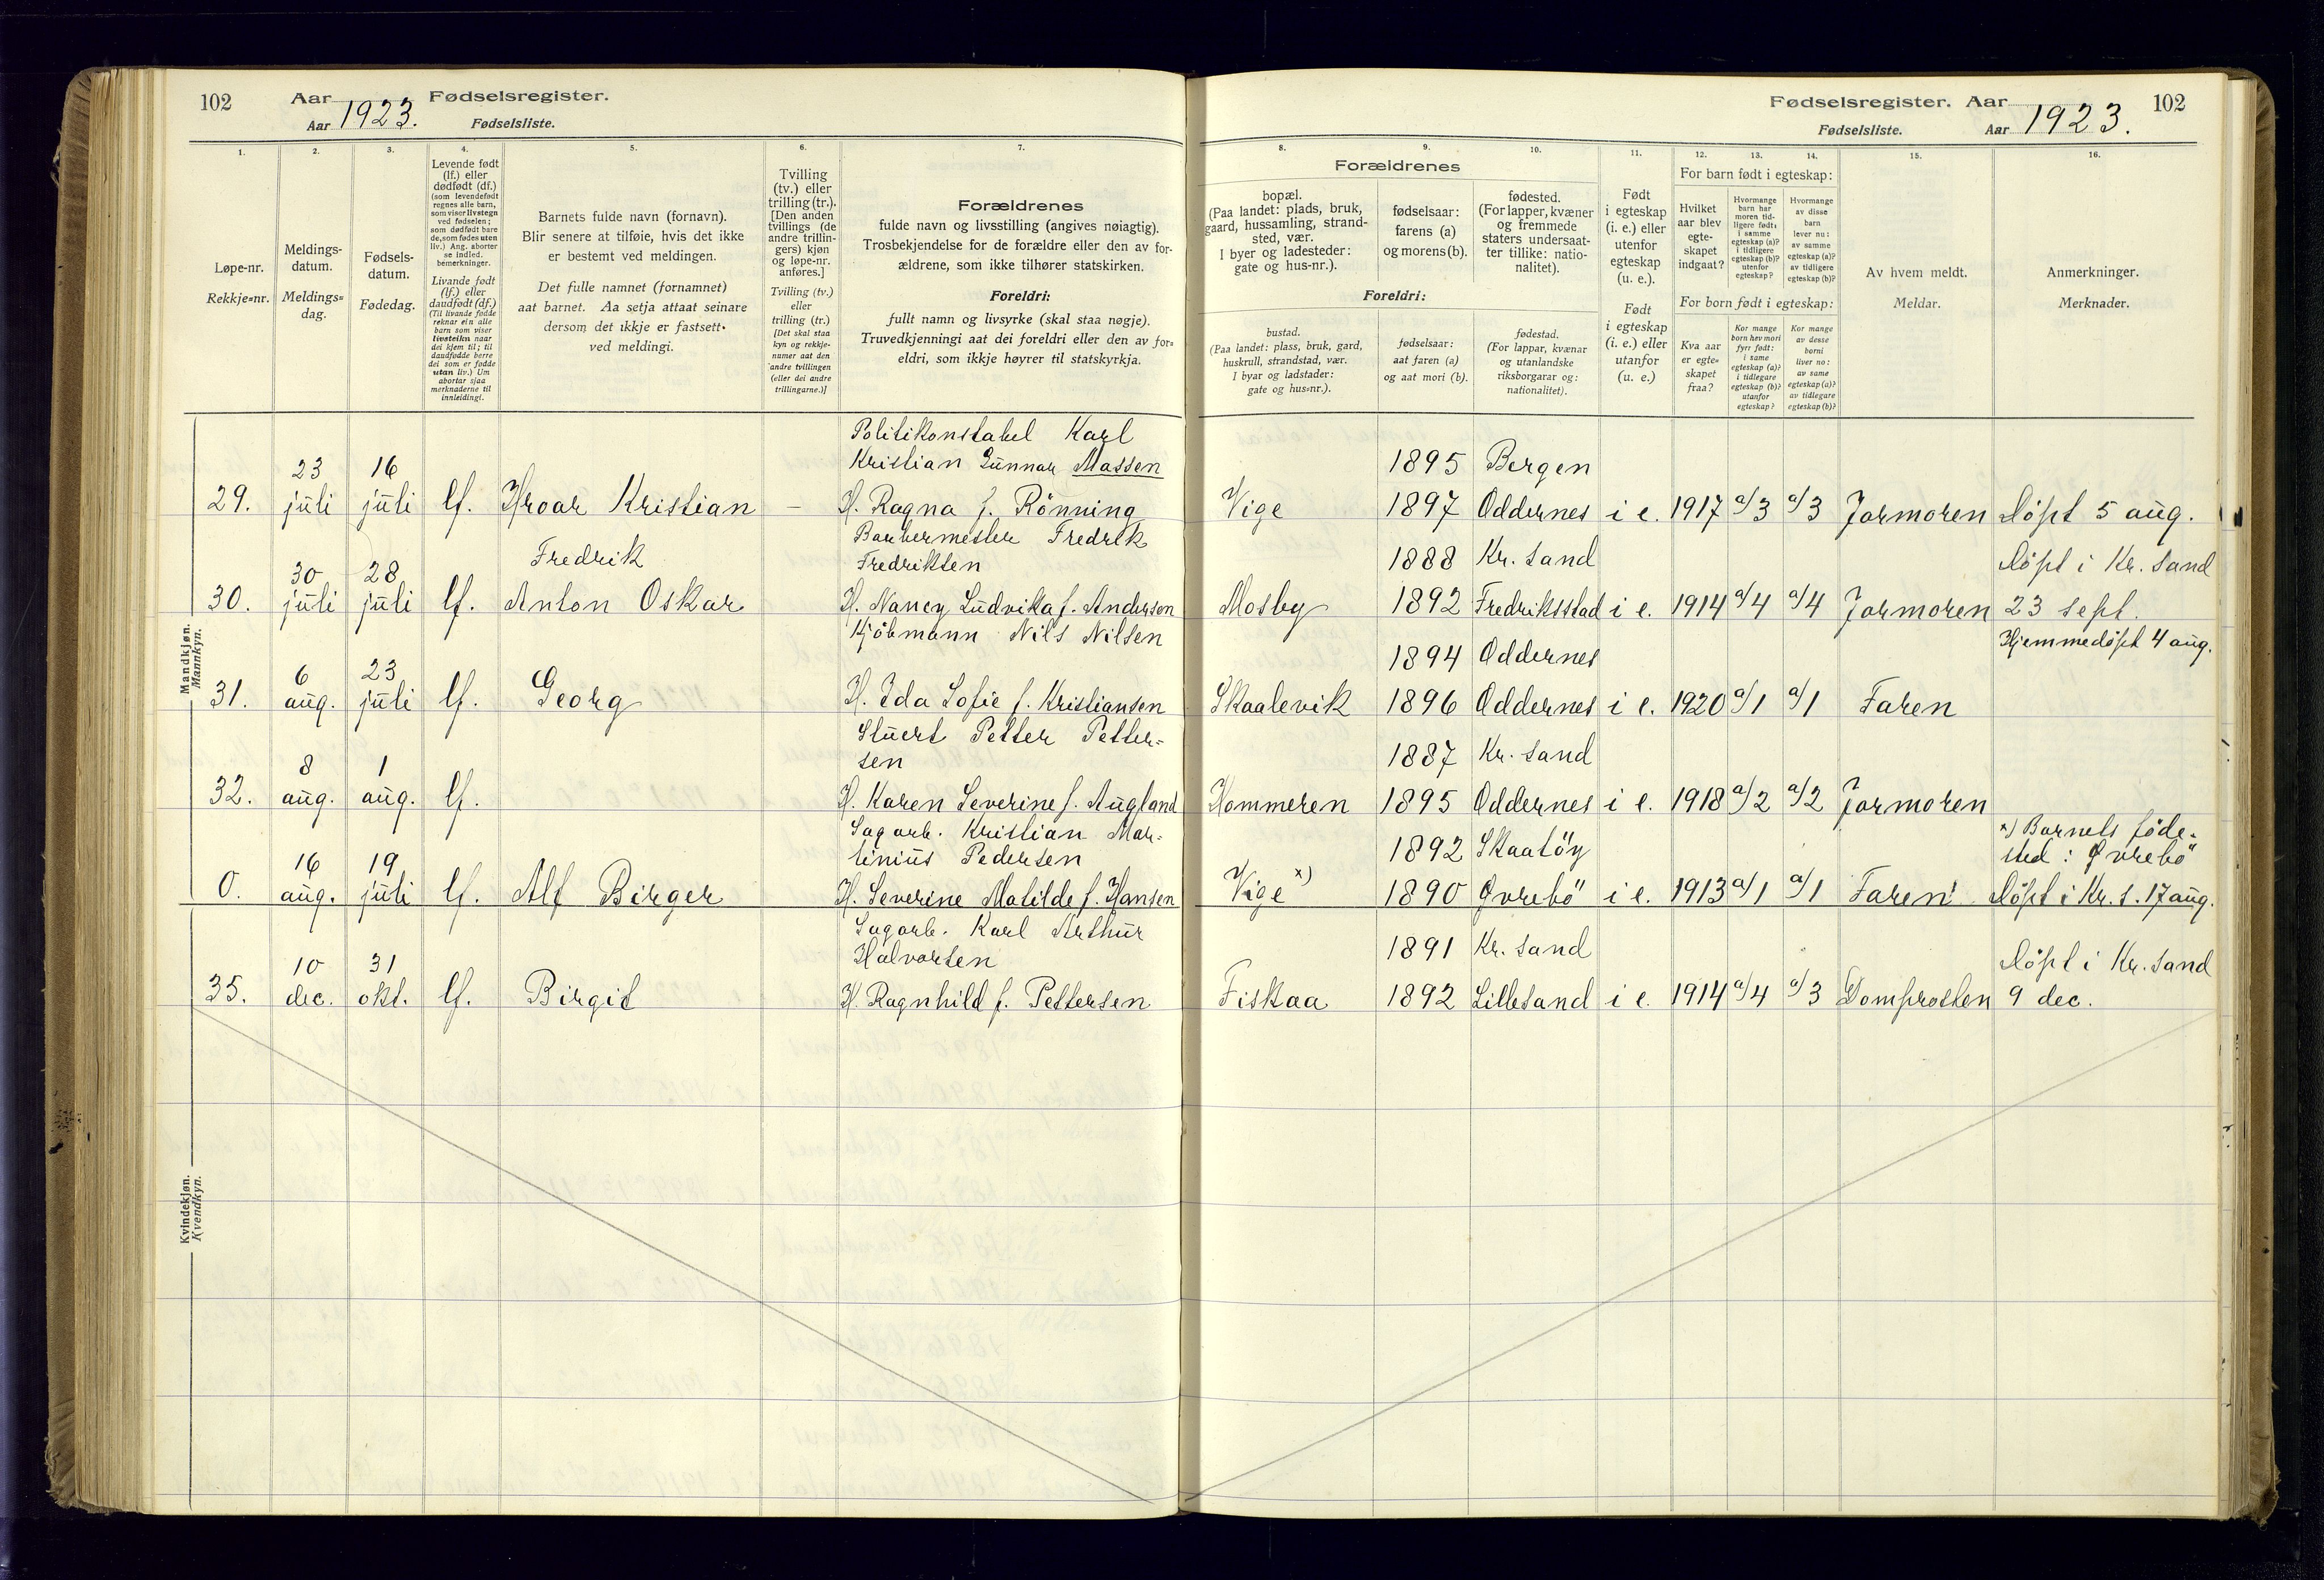 102 Aar 1923. Fødselsregister.
Aar Fødselsliste.
Fødselsregister. Aar 1923. 102
Fødselsliste. Aar
1. 2. 3. 4. 5. 6. 7.
Løpe-nr.
Rekkje=nr.
Meldings-
datum.
Meldings=
dag.
Fødsels-
datum.
Fødedag.
Levende født
(lf.) eller
dødfødt (df.)
(som levendefødt
regnes alle barn,
som viser livstegn
ved fødselen;
som dødfødt bare
de, som fødes uten
liv.) Ang. aborter
se indled.
bemerkninger.
Livande født
(lf.) eller
daudfødt (df.)
(Til livande fødde
reknar ein alle
barn som viser
livsteikn naar
dei kjem til; til
daudfødde berre
dei som er fødde
utan liv.) Um
abortar sjaa
merknaderne til
innleidingi.
Barnets fulde navn (fornavn).
Blir senere at tilføie, hvis det ikke
er bestemt ved meldingen.
Det fulle namnet (fornamnet)
aat barnet. Aa setja attaat seinare
dersom det ikkje er fastsett
ved meldingi.
Tvilling
(tv.) eller
trilling (tr.).
[Den anden
tvillings (de
andre trillin-
gers) kjøn
og løpe-nr.
anføres.]
Tvilling (tv.)
eller
trilling (tr.)
[Det skal staa
kyn og rekkje-
numer aat den
andre tvillingen
(eller dei andre
trillingarne.)]
Forældrenes
fulde navn og livsstilling (angives nøiagtig).
Trosbekjendelse for de forældre eller den av for-
ældrene, som ikke tilhører statskirken.
Foreldri:
fullt namn og livsyrke (skal staa nøgje).
Truvedkjenningi aat dei foreldri eller den av for=
eldri, som ikkje høyrer til statskyrkja.
8. 9. 10. 11. 12. 13. 14. 15. 16.
Forældrenes
bopæl.
(Paa landet: plads, bruk,
gaard, hussamling, strand-
sted, vær.
I byer og ladesteder:
gate og hus-nr.).
fødselsaar:
farens (a)
og morens (b).
fødested.
(For lapper, kvæner
og fremmede
staters undersaat-
ter tillike: natio-
nalitet).
Foreldri:
bustad.
(Paa landet: plass, bruk, gard,
huskrull, strandstad, vær.
I byar og ladstader:
gate og hus=nr.).
fødselsaar:
aat faren (a)
og aat mori (b).
fødestad.
(For lappar, kvænar
og utanlandske
riksborgarar og:
nationalitet).
Født
i egteskap
(i. e.) eller
utenfor
egteskap
(u. e.).
Født
i egteskap
(i. e.) eller
utanfor
(u. e.)
For barn født i egteskap:
Hvilket
aar blev
egte-
skapet
indgaat?
Hvormange
barn har
moren tid-
ligere født:
i samme
egteskap (a)?
i tidligere
egteskap (b)?
utenfor
egteskap?
Hvormange
av disse
barn
lever nu:
av samme
egteskap (a)?
av tidligere
egteskap (b)?
For born født i egteskap:
Kva aar
er egte=
skapet
fraa?
Kor mange
born hev mori
fyrr født:
i same
egteskap (a)?
i tidlegare
egteskap (b)?
utanfor
egteskap?
Kor mange
av desse
borni
liver no:
av same
egteskap (a)?
av tidlegare
egteskap (b)?
Av hvem meldt.
Meldar.
Anmerkninger.
Merknader.
Mandkjøn.
Mannkyn.
Politikonstabel Karl
Kristian Gunnar Massen 1895 Bergen
29. 23 juli 16 juli lf. Hroar Kristian – H. Ragna f. Rönning Vige 1897 Oddernes i e. 1917 a/3 a/3 Jormoren Döpt 5 aug.
Barbermester Fredrik
Fredriksen 1888 Kr. sand Döpt i Kr. sand
30. 30 juli 28 juli lf. Fredrik Anton Oskar H. Nancy Ludvika f. Andersen Mosby 1892 Fredriksstad i e. 1914 a/4 a/4 Jormoren 23 sept.
Kjöbmann Nils Nilsen 1894 Oddernes Hjemmedöpt 4 aug.
31. 6 aug. 23 juli lf. Georg H. Ida Sofie f. Kristiansen Skaalevik 1896 Oddernes i e. 1920 a/1 a/1 Faren
Stuert Petter Petter=
sen 1887 Kr. sand
32. 8 aug. 1 aug. lf. H. Karen Severine f. Augland Hommeren 1895 Oddernes i e. 1918 a/2 a/2 Jormoren
Sagarb. Kristian Mar=
tinius Pedersen 1892 Skaatöy x) Barnets föde-
sted: Øvrebö
0. 16 aug. 19 juli lf. Alf Birger H. Severine Matilde f. Hansen Vige x) 1890 Øvrebö i e. 1913 a/1 a/1 Faren Döpt i Kr. s. 17 aug.
Sagarb. Karl Arthur
Halvorsen 1891 Kr. sand Döpt i Kr. sand
35. 10 dec. 31 okt. lf. Birgit H. Ragnhild f. Pettersen Fiskaa 1892 Lillesand i e. 1914 a/4 a/3 Domprosten 9 dec.
Kvindekjøn.
Kvendkyn.